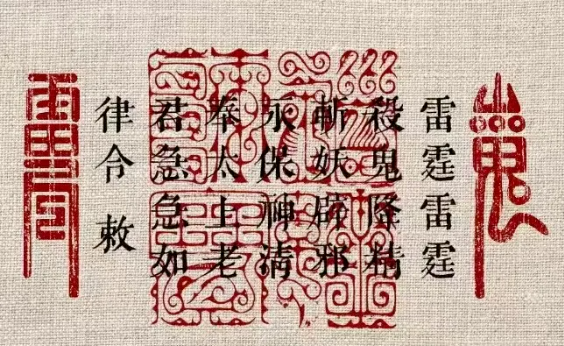 雷霆雷霆
殺鬼降精
斬妖辟邪
永保神清
奉太上老
君急急如
律令敕